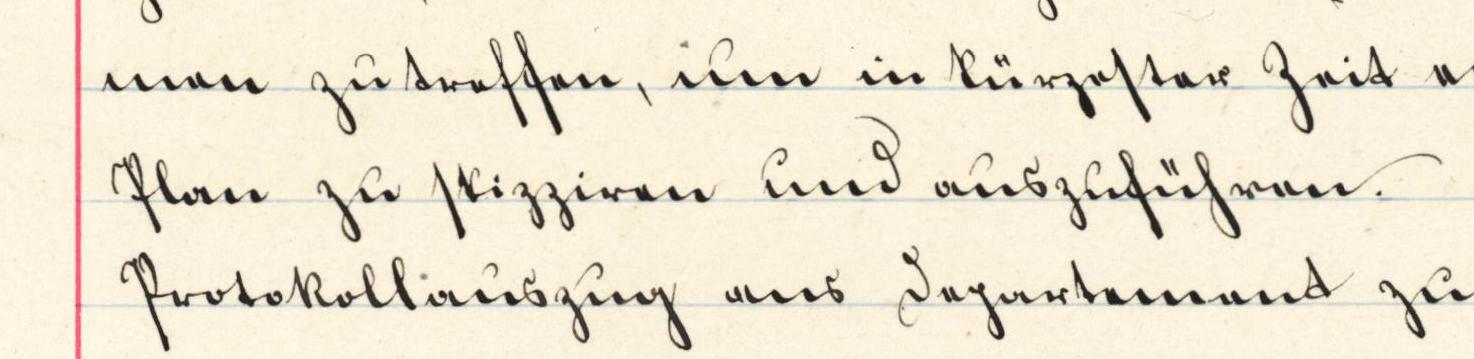 men zu treffen, um in kürzester Zeit
Plan zu skizziren und auszuführen.
Protokollauszug ans Departement zu